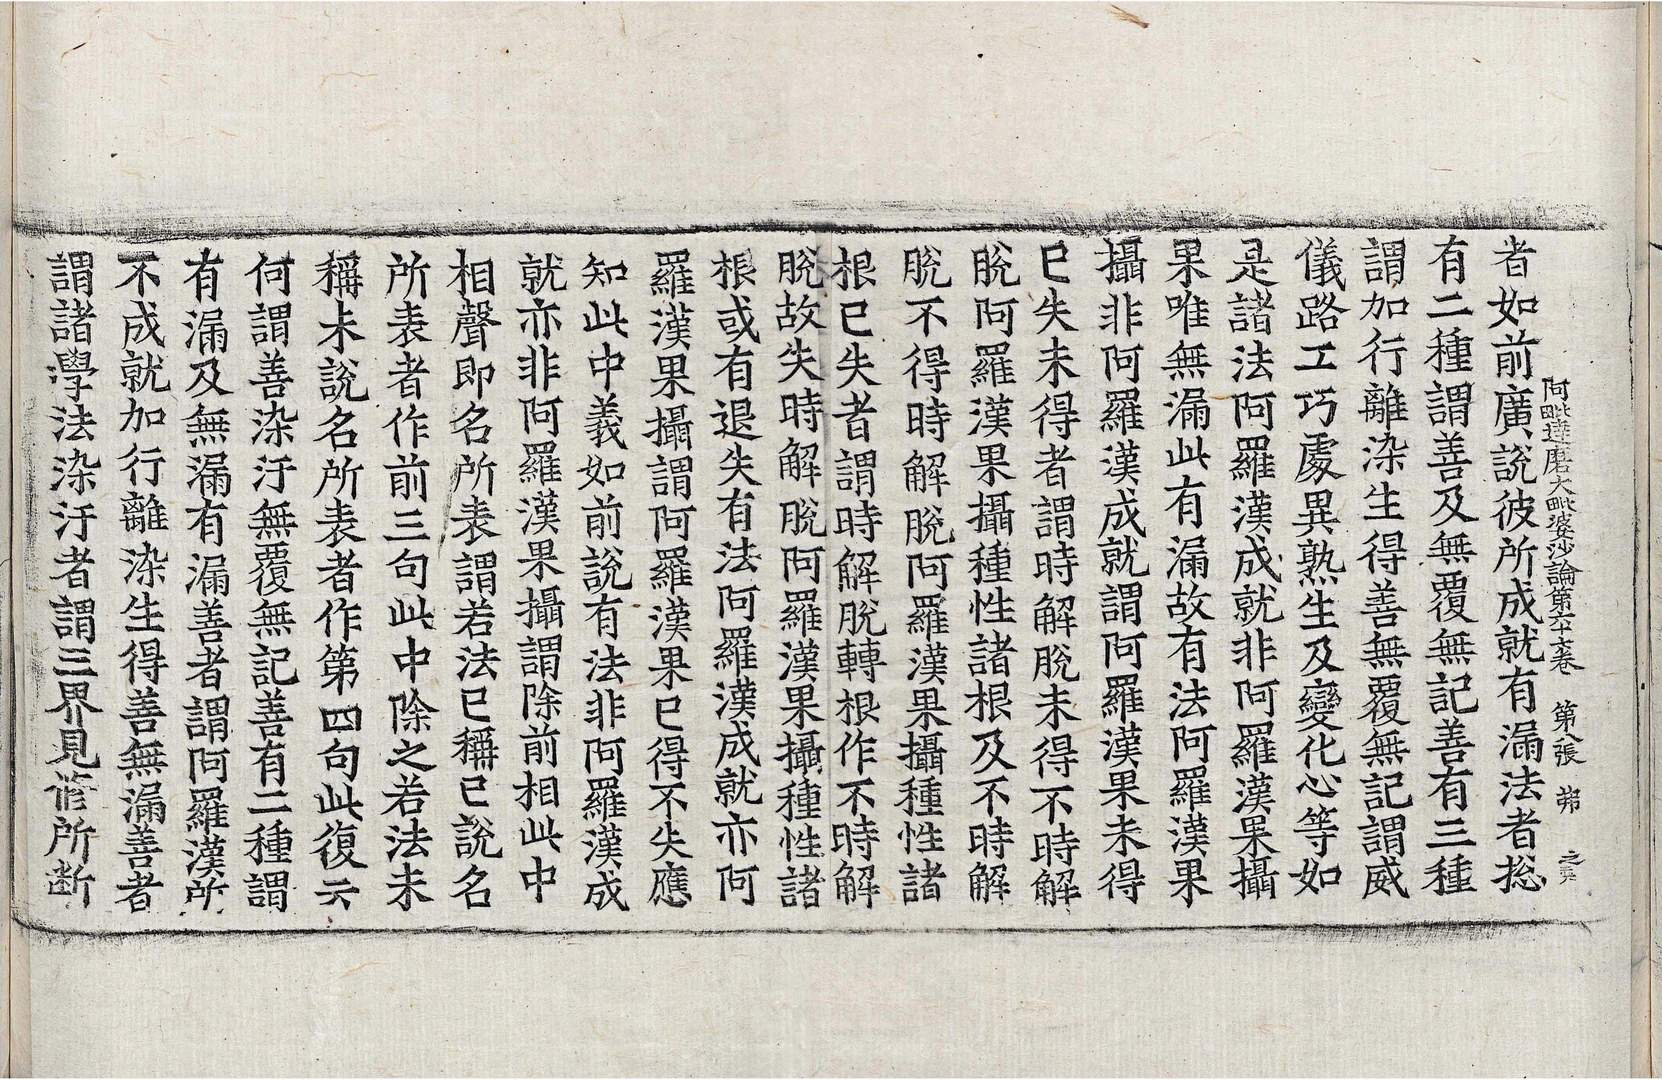 阿毗達磨大毗婆沙論第 卷 第八張 朔
者如前廣說彼所成就有漏法者揔
有二種謂善及無覆無記善有三種
謂加行離染生得善無覆無記謂威
儀路工巧處異熟生及變化心等如
是諸法阿羅漢成就非阿羅漢果攝
果唯無漏此有漏故有法阿羅漢果
攝非阿羅漢成就謂阿羅漢果未得
已失未得者謂時解脫未得不時解
脫阿羅漢果攝種性諸根及不時解
脫不得時解脫阿羅漢果攝種性諸
根已失者謂時解脫轉根作不時解
脫故失時解脫阿羅漢果攝種性諸
根或有退失有法阿羅漢成就亦阿
羅漢果攝謂阿羅漢果已得不失應
知此中義如前說有法非阿羅漢成
就亦非阿羅漢果攝謂除前相此中
相聲即名所表謂若法已稱已說名
所表者作前三句此中除之若法未
稱未說名所表者作第四句此復云
何謂善染汙無覆無記善有二種謂
有漏及無漏有漏善者謂阿羅漢所
不成就加行離染生得善無漏善者
謂諸學法染汙者謂三界見修所斷